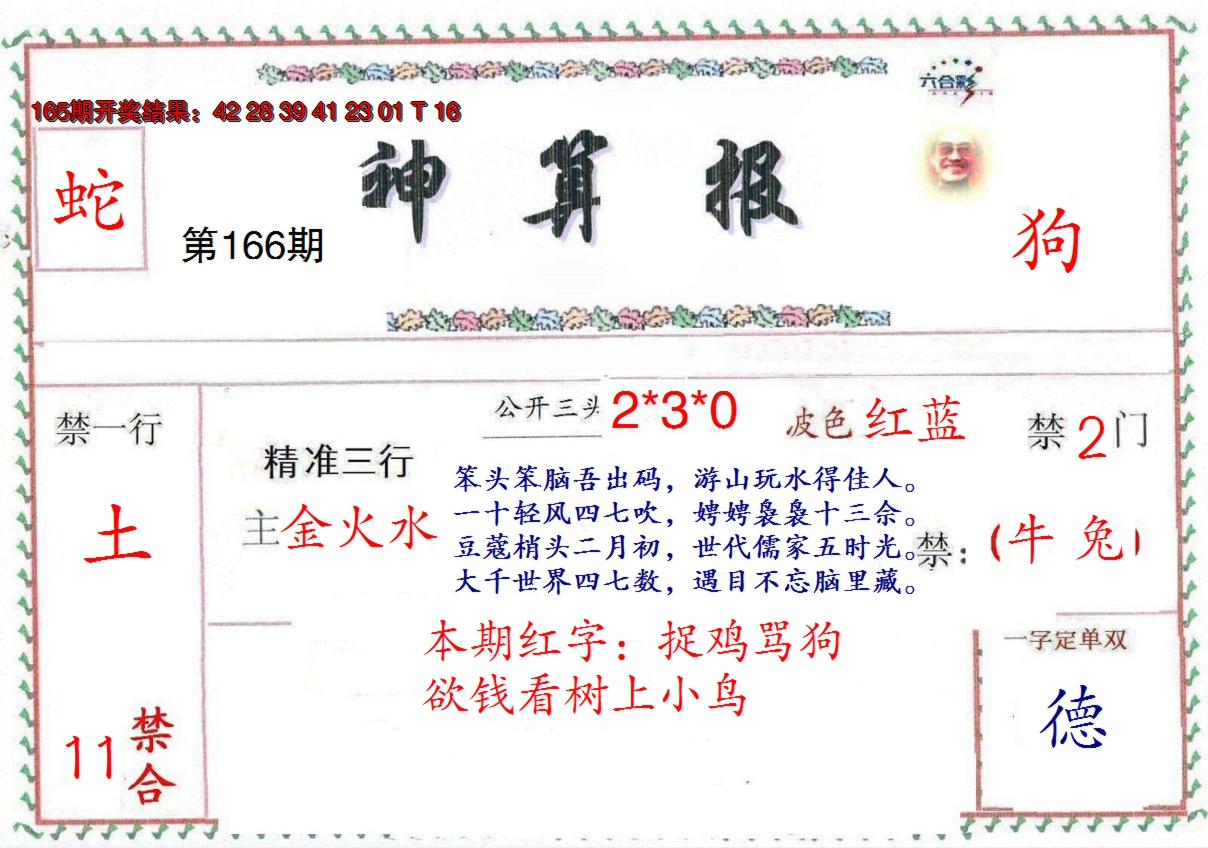 六合彩
165期开奖结果：42 28 39 41 23 01 T 16
神算报
蛇
第166期
狗
公开三头 2*3*0
波色 红蓝
禁 2 门
禁一行
土
精准三行
主金火水
笨头笨脑吾出码，游山玩水得佳人。
一十轻风四七吹，娉娉袅袅十三余。
豆蔻梢头二月初，世代儒家五时光。
大千世界四七数，遇目不忘脑里藏。
禁：（牛 兔）
本期红字：捉鸡骂狗
欲钱看树上小鸟
一字定单双
德
11 禁合